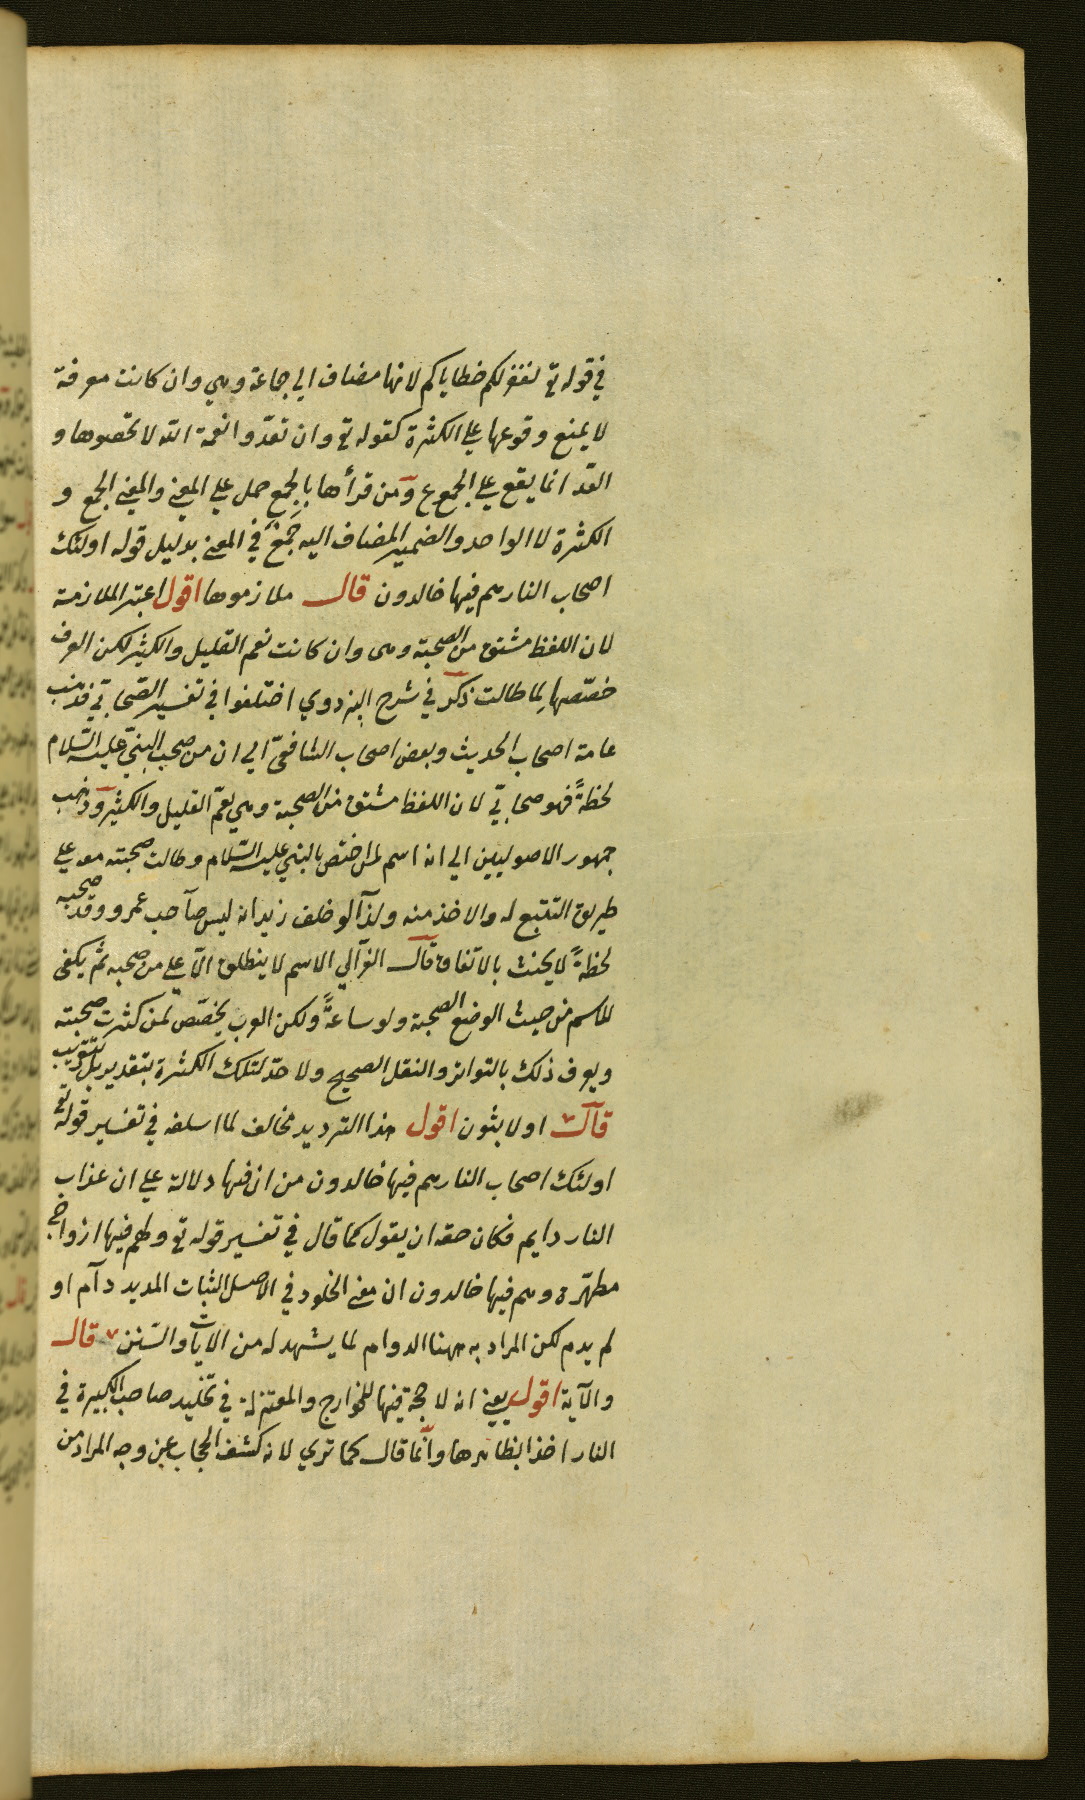 في قوله تع نغفر لكم خطاياكم لانها مضاف الي جماعة وهي وان كانت معرفة
لا يمنع وقوعها علي الكثرة كقوله تع وان تعدّوا نعمة الله لا تحصوها و
العدّ انما يقع علي الجمع ع ومن قرأها بالجمع حمل علي المعني والمعني الجمع و
الكثرة لا الواحد والضمير المضاف اليه جَمعٌ في المعني بدليل قوله اولئك
اصحاب النار هم فيها خالدون قال ملازموها اقول اعتبر الملازمة
لان اللفظ مشتق من الصحبة وهى وان كانت تعم القليل والكثير لكن العرف
خصّصها لِما طالت ذكر في شرح البزدوي اختلفوا في تفسير الصّحابيّ فذهب
عامة اصحاب الحديث وبعض اصحاب الشافعيّ الي ان من صحب النبيّ عليه السّلام
لحظةً فهو صحابيّ لان اللفظ مشتق من الصحبة وهي يعمّ القليل والكثير وذهب
جمهور الاصوليين الي انه اسم لمن اختص بالنبي عليه السّلام وطالت صحبته معه علي
طريق التتبع له والاخذ منه ولذا لو حلف زيد انه ليس صاحب عمرو وقد صحبه
لحظةً لا يحنث بالاتفاق قال الغزالي الاسم لا ينطلق الاّ علي من صحبه ثم يكفى
للاسم من حيث الوضع الصحبة ولو ساعةً ولكن العرب يخصّص لمن كثرت صحبته
ويعرف ذلك بالتواتر والنقل الصحيح ولا حدّ لتلك الكثرة بتقدير بل بتقريب
قال او لابثون اقول هذا الترديد مخالف لما اسلفه في تفسير قوله تع
اولئك اصحاب النار هم فيها خالدون من ان فيها دلالة علي ان عذاب
النار دايم فكان حقه ان يقول كما قال في تفسير قوله تع ولهم فيها ازواج
مطهّرة وهم فيها خالدون ان معني الخلود في الاصل الثبات المديد دام او
لم يدم لكن المراد به ههنا الدوام لما يشهد له من الآيات والسّنن قال
والآية اقول يعني انه لا حجة فيها للخوارج والمعتزلة في تخليد صاحب الكبيرة في
النار اخذا بظاهرها وانّما قال كما تري لانه كشف الحجاب عن وجه المراد من